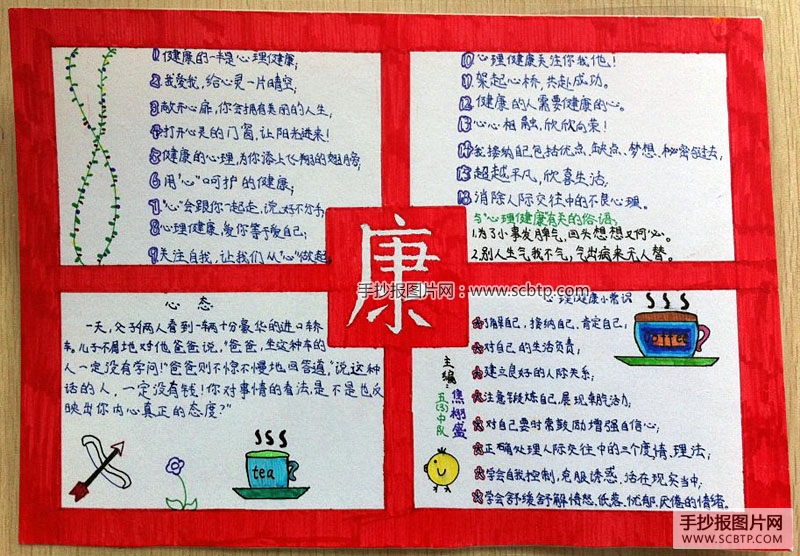 1健康的一半是心理健康;
2.我爱我,给心灵一片晴空;
3敞开心扉,你会拥有美丽的人生;
4打开心灵的门窗,让阳光进来!
5健康的心理,为你添上飞翔的翅膀;
6用"心"呵护的健康;
7."心"会跟你一起走,说好不分手;
8心理健康,爱你等于爱自己;
9关注自我,让我们从"心"做起。
10心理健康关注你我他!
11.架起心桥,共赴成功。
12.健康的人需要健康的心。
13心心相融,欣欣向荣!
14我接纳自己包括优点、缺点、梦想、秘密、过去,
15超越平凡,欣喜生活;
16.消除人际交往中的不良心理。
与"心理健康"有关的俗语:
1.为了小事发脾气,回头想想又何必。
2.别人生气我不气,气出病来无人替。
康
手抄报图片网:www.scbtp.com
心态
一天,父子俩人看到一辆十分豪华的进口轿
车。儿子不屑地对他爸爸说,"爸爸,坐这种车的
人一定没有学问!"爸爸则不惊不慢地回答道,"说这种
话的人,一定没有钱!你对事情的看法,是不是也反
映出你内心真正的态度?"
tea
心理健康小常识
了解自己,接纳自己,肯定自己,
对自己的生活负责,
建立良好的人际关系;
注意锻炼自己,展现
对自己要时常鼓励增强自信心;
正确处理人际交往中的三个度:情、理、法;
学会自我控制,克服诱惑,活在现实当中;
学会舒缓舒解愤怒、低落、忧郁、厌倦的情绪。
coffee
主编:
五(3)中队
手抄报图片网
WWW.SCBTP.COM